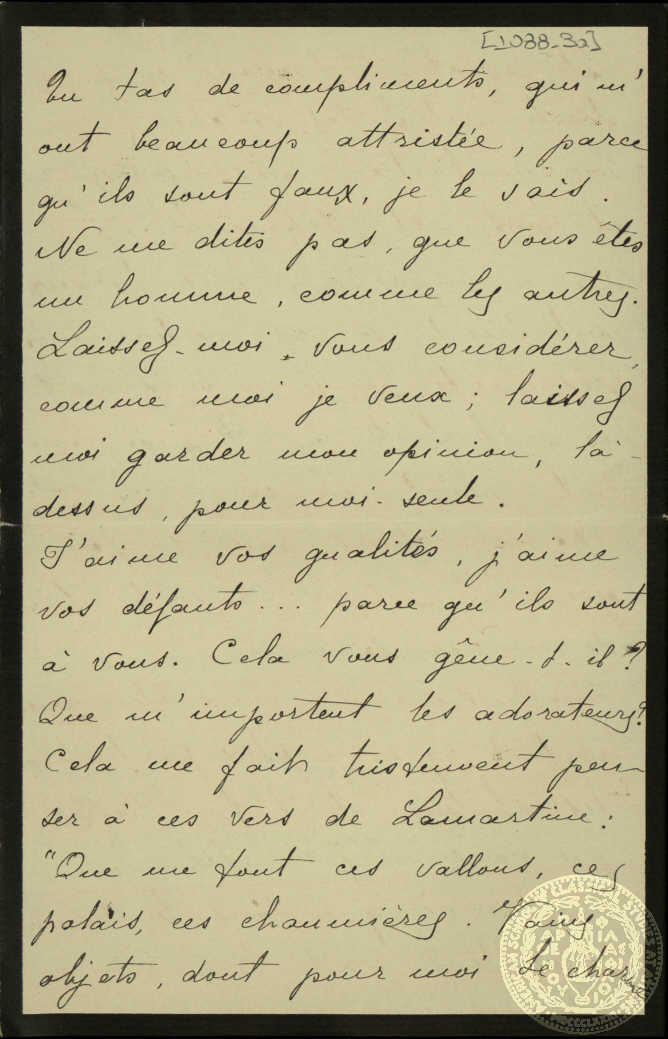 [1088-3a]
Un tas de compliments, qui m'
ont beaucoup attristée, parce
qu'ils sont faux, je le sais.
Ne me dites pas, que vous êtes
un homme, comme les autres.
Laissez-moi, vous considérer,
comme moi je veux; laissez
moi garder mon opinion, là-
dessus, pour moi-seule.
J'aime vos qualités, j'aime
vos défauts... parce qu'ils sont
à vous. Cela vous gêne-t-il?
Que m'importent les adorateurs?
Cela me fait tristement pen-
ser à ces vers de Lamartine:
"Que me font ces vallons, ces
palais, ces chaumières. Vains
objets, dont pour moi le charme